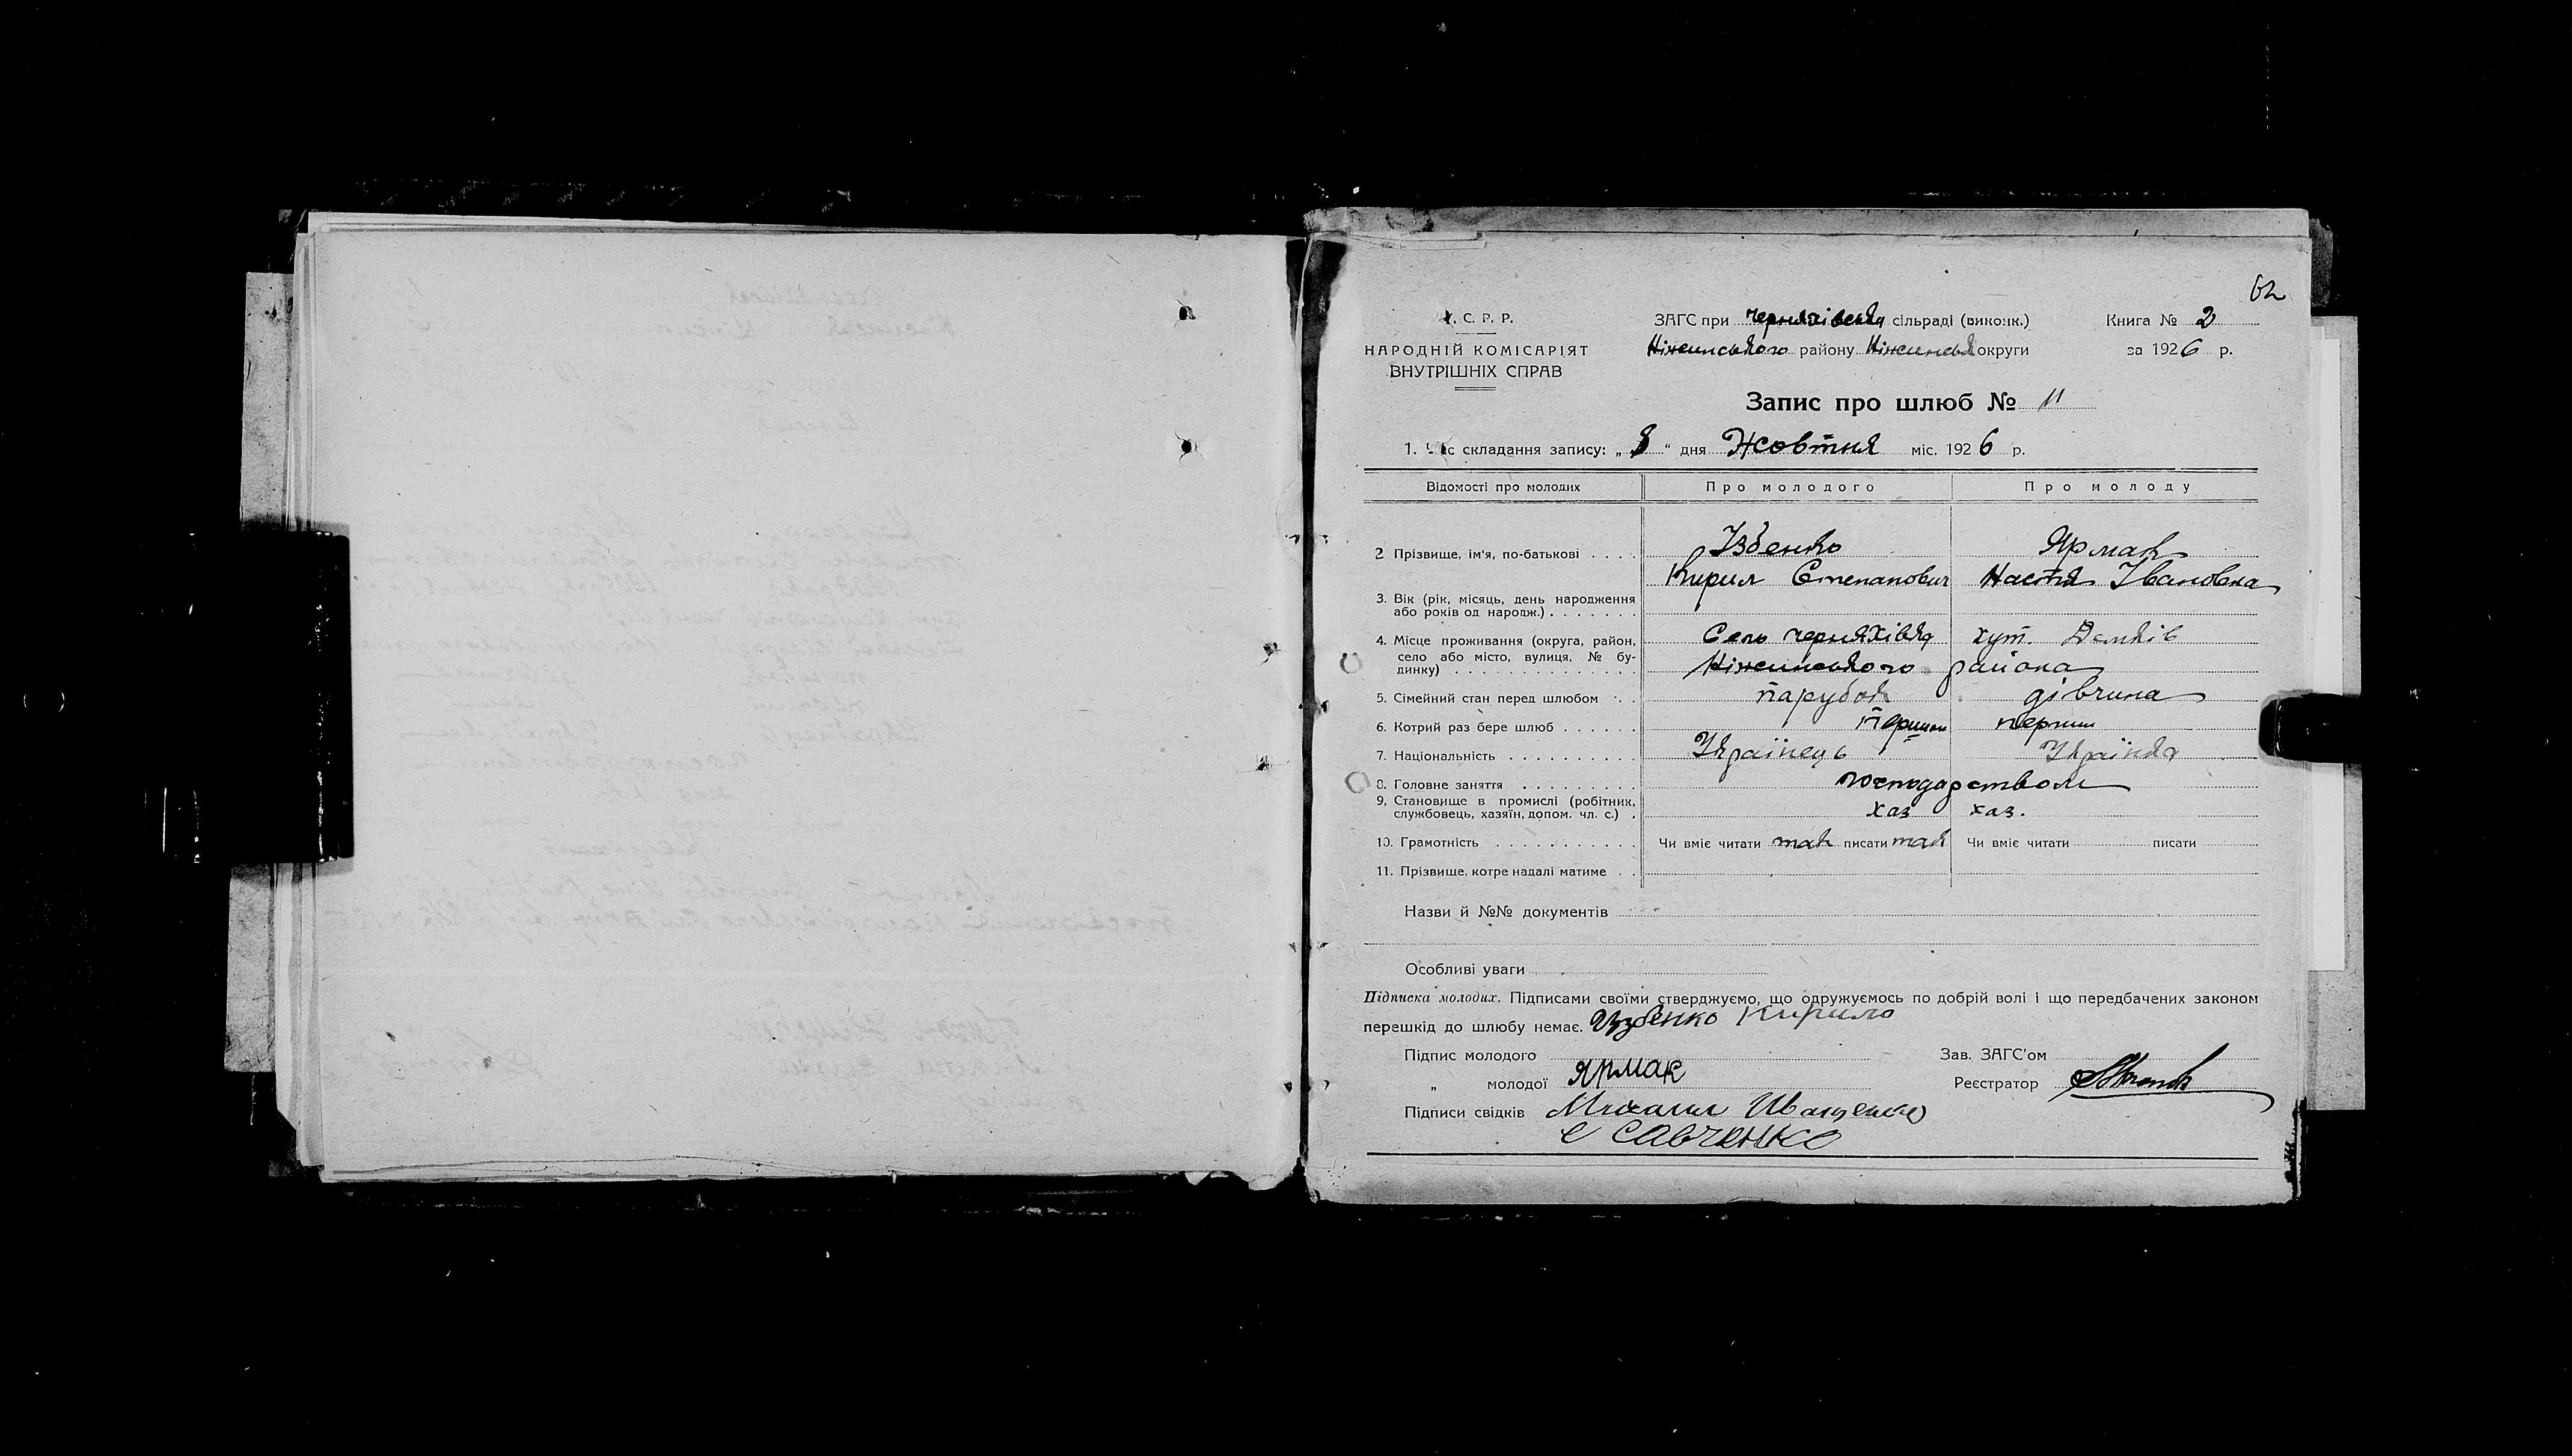 62
У. С. Р. Р.
НАРОДНІЙ КОМІСАРІЯТ
ВНУТРІШНІХ СПРАВ
ЗАГС при Черняхівській сільраді (виконк.)
Ніжинського району Ніжинськ округи
Книга № 2
за 1926 р.
Запис про шлюб № 11
1. Час складання запису: „ 8 “ дня Жовтня міс. 1926 р.
Відомості про молодих Про молодого Про молоду
2 Прізвище, ім'я, по-батькові . . . . Ізбенко Ярмак
Кирил Степанович Настя Івановна
3. Вік (рік, місяць, день народження
або років од народж.) . . . . . . .
4. Місце проживання (округа, район, Село Черняхівка хут.
село або місто, вулиця, № бу-
динку) . . . . . . . . . . . . . . Ніжинського района
5. Сімейний стан перед шлюбом . . парубок дівчина
6. Котрий раз бере шлюб . . . . . . перший перший
7. Національність . . . . . . . . . . Українець Українка
8. Головне заняття . . . . . . . . . господарством
9, Становище в промислі (робітник, хаз хаз.
службовець, хазяїн, допом. чл. с.) .
10. Грамотність . . . . . . . . . . . Чи вміє читати так писати так Чи вміє читати писати
11. Прізвище, котре надалі матиме . .
Назви й №№ документів
Особливі уваги
Підписка молодих. Підписами своїми стверджуємо, що одружуємось по добрій волі і що передбачених законом
перешкід до шлюбу немає. Ізубенко Кирило
Підпис молодого Зав. ЗАГС'ом
„ молодої Ярмак Реєстратор
Підписи свідків Михаил Иващенко
С Савченко